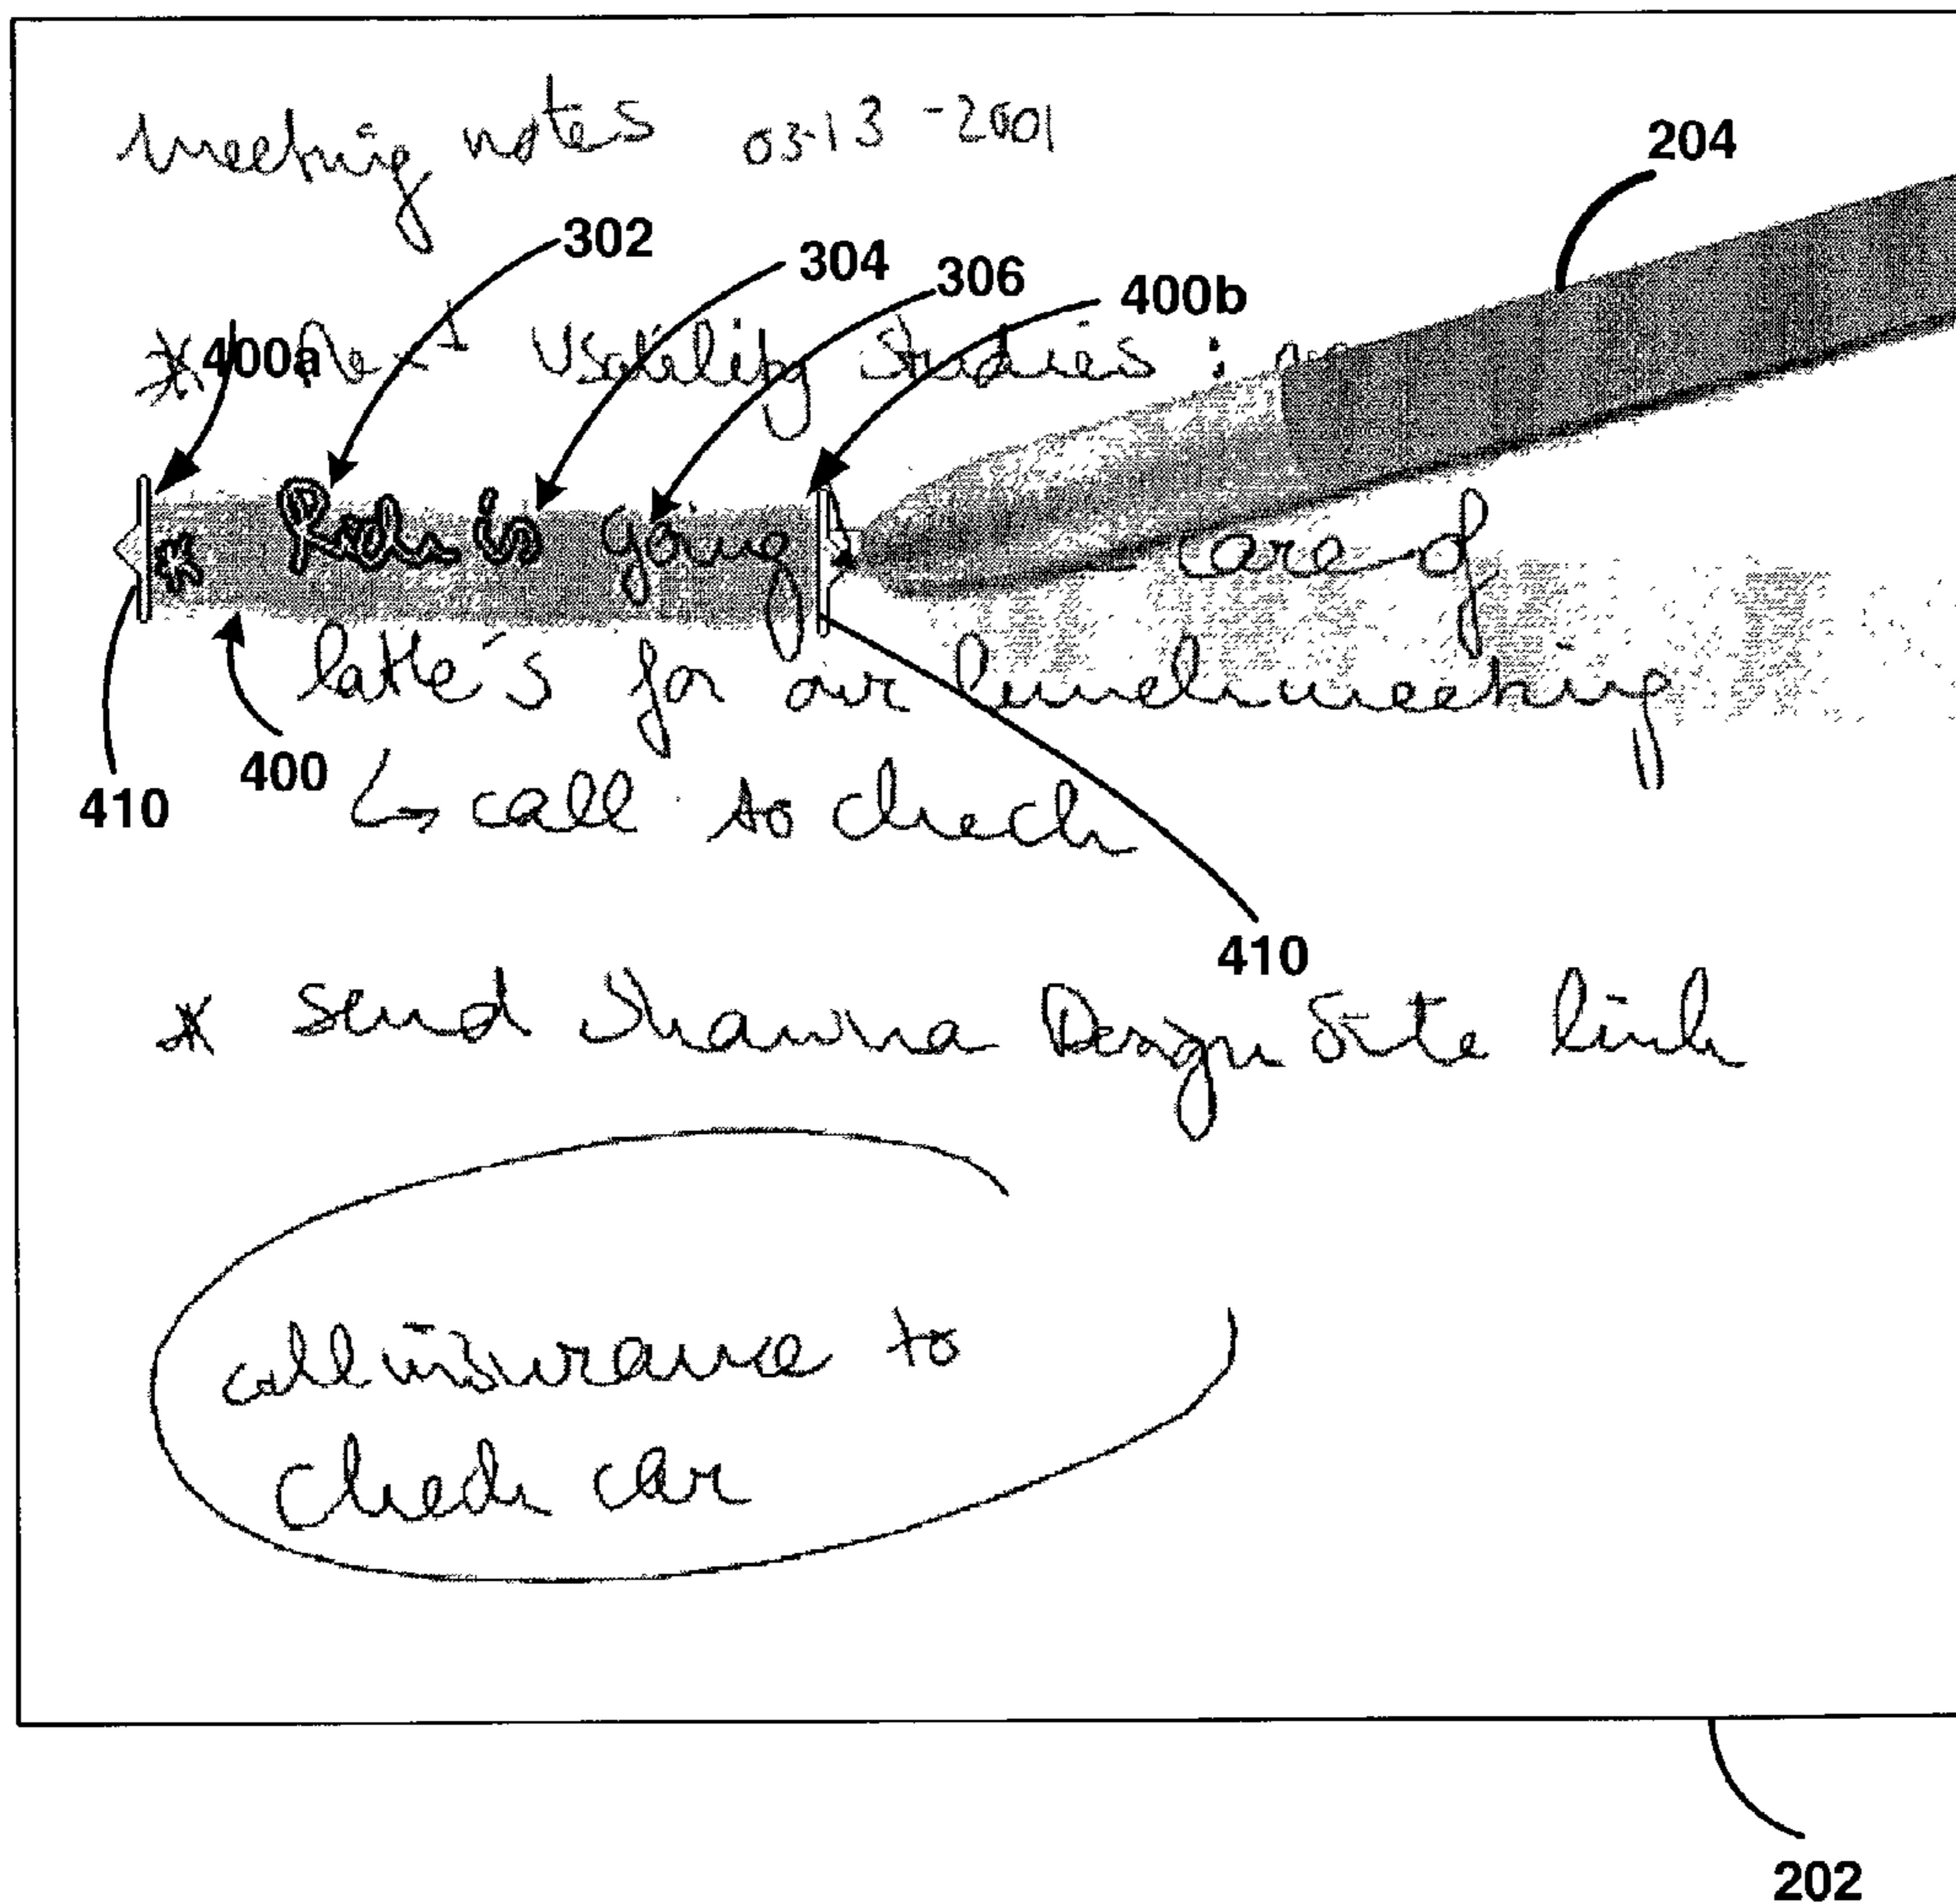 meeting notes 03-13-2001
204
302
304
306
400b
400a
* Next Usability Studies :
* Rich is going care of
latte's for our lunch meeting
400
410
↳ call to check
410
* Send Shawna Design Site link
call insurance to
check car
202